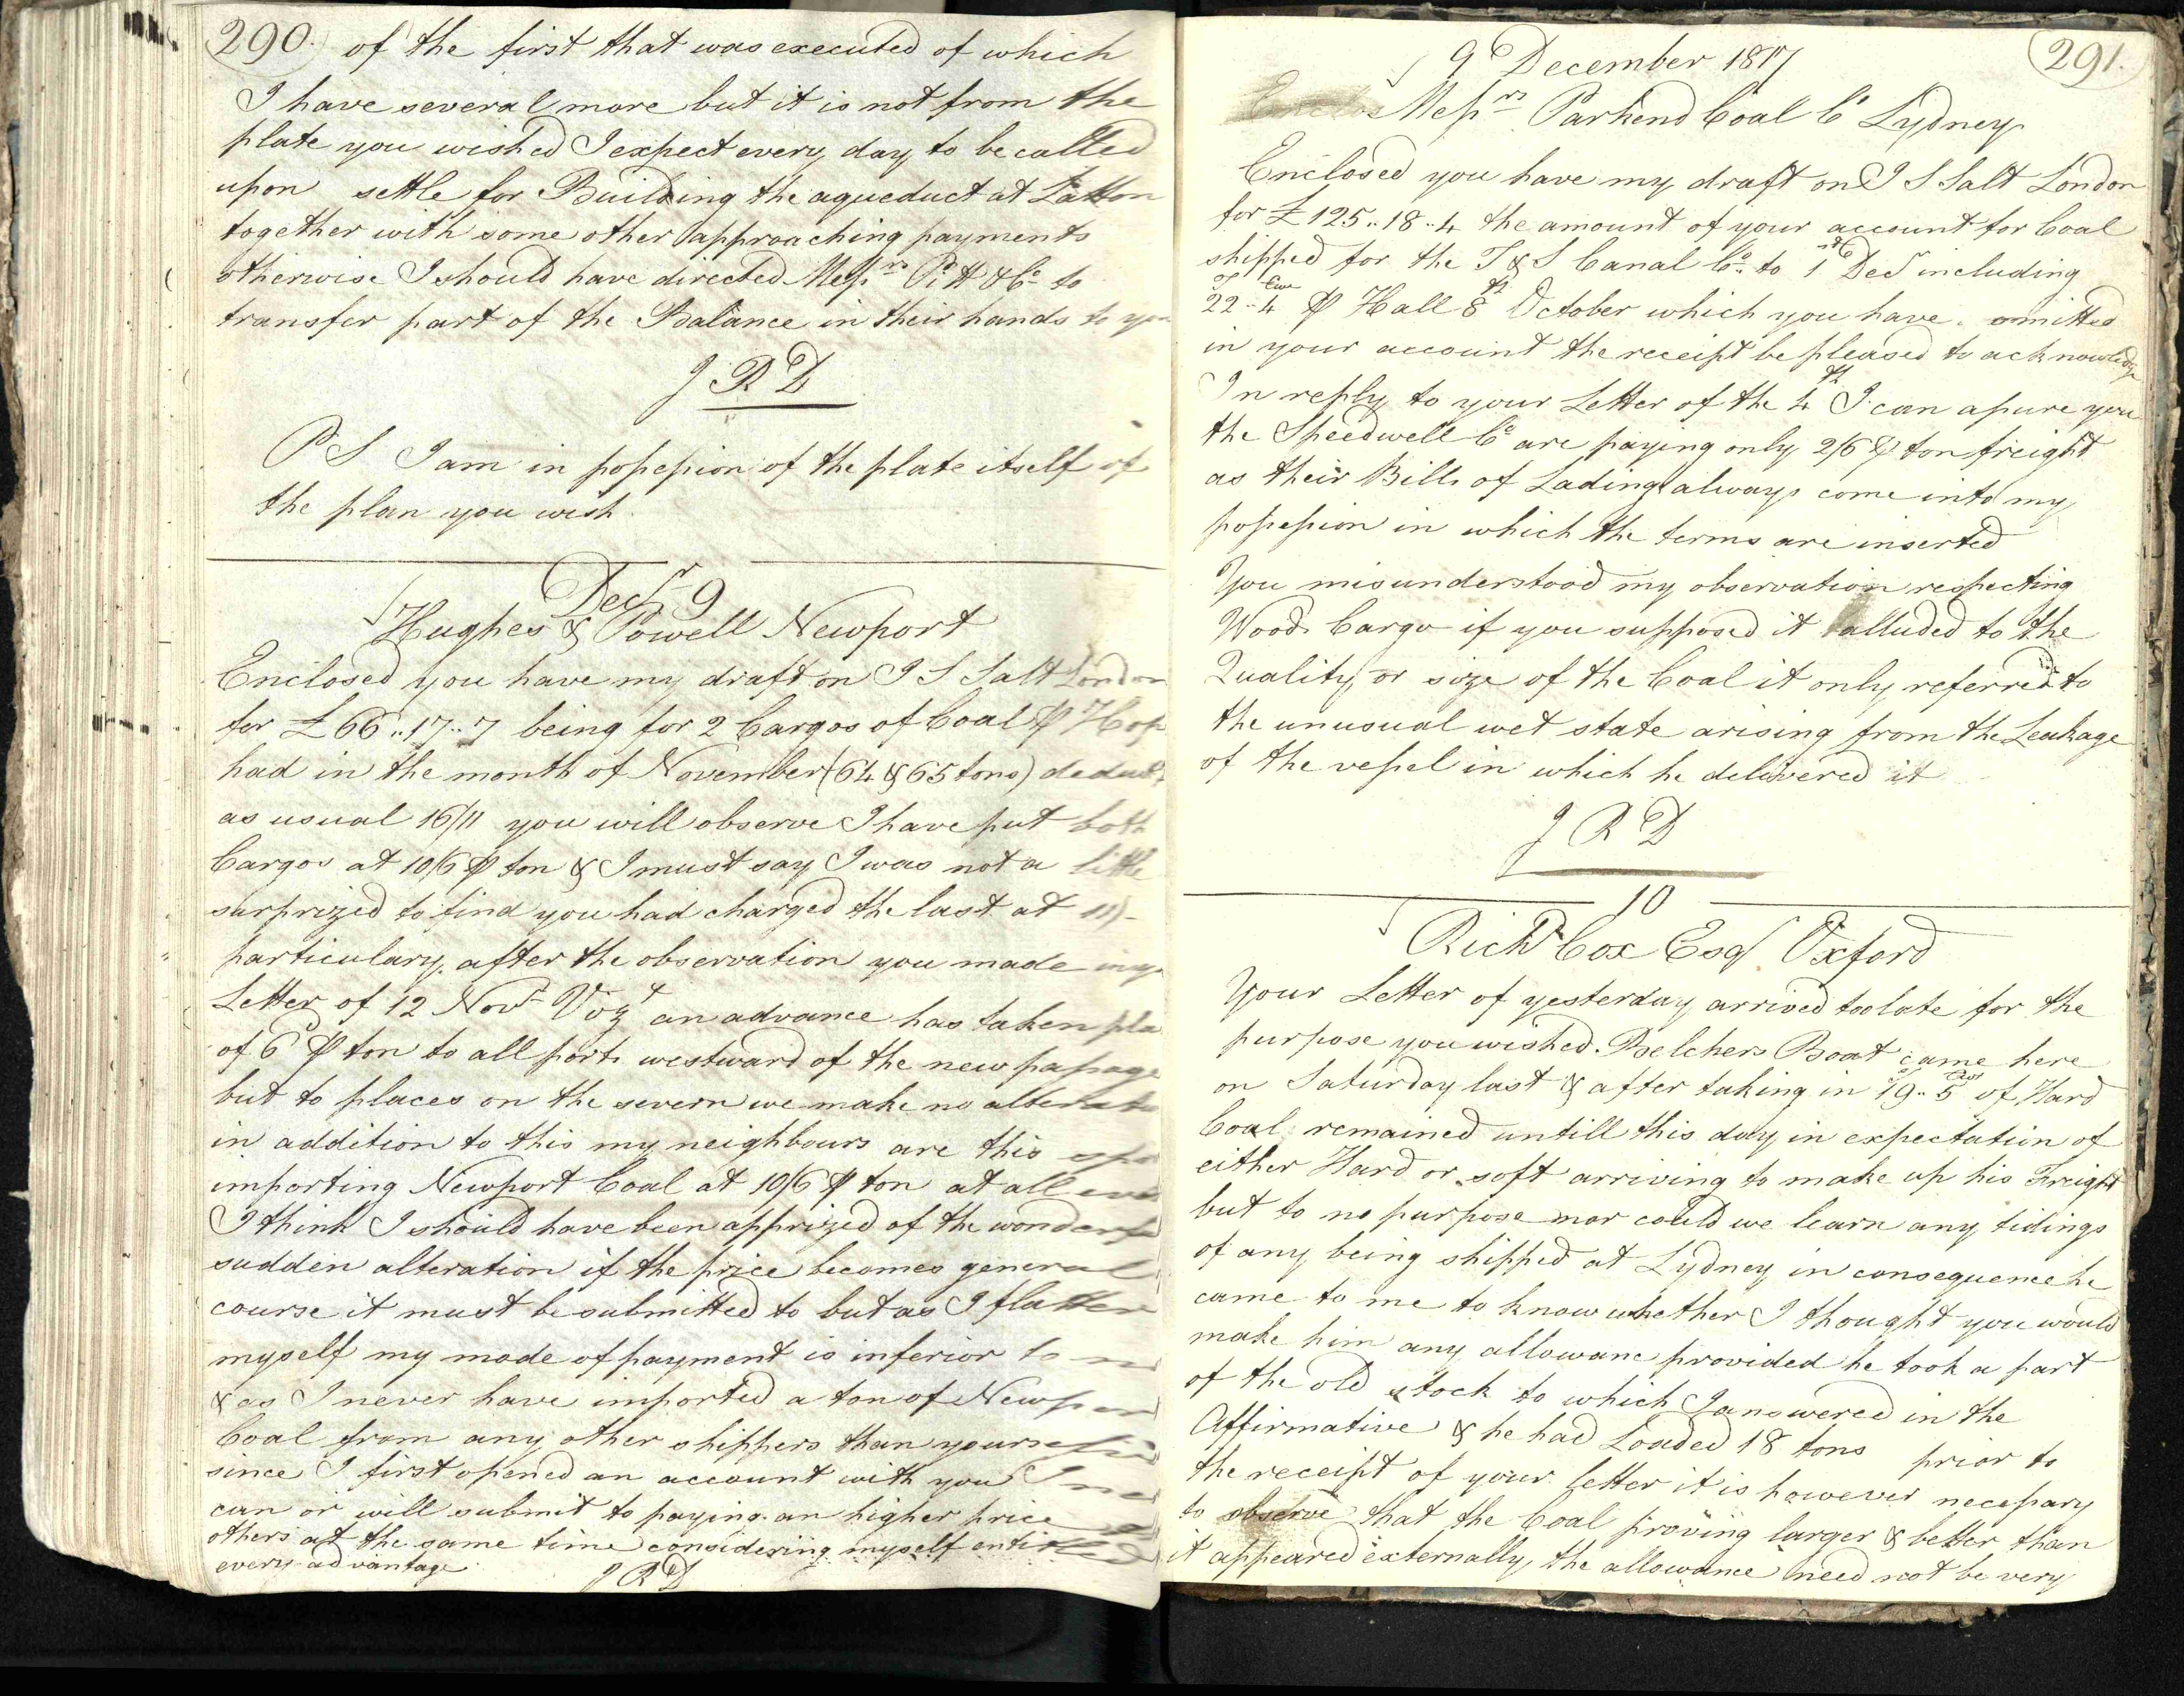 290. of the first that was executed of which
I have several more but it is not from the
plate you wished I expect every day to be called
upon settle for Building the aqueduct at Latton
together with some other approaching payments
otherwise I should have directed Messrs P. H & Co to
transfer part of the Balance in their hands to you
J R D
P S I am in possession of the plate itself of
the plan you wish
Decr 9
Hughes & Powell Newport
Enclosed you have my draft on J S Salt London
for £66..17..7 being for 2 Cargos of Coal ⅌ Hope
had in the month of November (64 & 65 tons) deduct
as usual 16/11 you will observe I have put both
Cargos at 10/6 ⅌ ton & I must say I was not a little
surprized to find you had charged the last at 11/-
particulary after the observation you made in
Letter of 12 Novr Vizt an advance has taken pla
of 6d ⅌ ton to all ports westward of the new passage
but to places on the severn we make no alterat
in addition to this my neighbours are this
importing Newport Coal at 10/6 ⅌ ton at all
I think I should have been apprized of the wonderful
sudden alteration if the price becomes general
course it must be submitted to but as I flatter
myself my mode of payment is inferior to
& as I never have imported a ton of Newport
Coal from any other shippers than yourselves
since I first opened an account with you I
can or will submit to paying an higher price
others at the same time considering myself entitled
every advantage J R D
291.
9 December 1817
Messrs Parkend Coal Co Lydney
Enclosed you have my draft on J S Salt London
for £125..18..4 the amount of your account for Coal
shipped for the T & S Canal Co to 1st Decr including
22 T..4 Cwt ⅌ Hall 8th October which you have omitted
in your account the receipt be pleased to acknowledge
In reply to your Letter of the 4th I can assure you
the Speedwell Co are paying only 2/6 ⅌ ton freight
as their Bills of Lading always come into my
possession in which the terms are inserted
You misunderstood my observation respecting
Woods Cargo if you supposed it alluded to the
Quality or size of the Coal it only referred to
the unusual wet state arising from the Leakage
of the vessel in which he delivered it
J R D
10
Richd Cox Esqr Oxford
Your Letter of yesterday arrived too late for the
purpose you wished. Belchers Boat came here
on Saturday last & after taking in 19 T..5 Cwt of Hard
Coal remained untill this day in expectation of
either Hard or soft arriving to make up his Freight
but to no purpose nor could we learn any tidings
of any being shipped at Lydney in consequence he
came to me to know whether I thought you would
make him any allowanc provided he took a part
of the old stock to which I answered in the
Affirmative & he had Loaded 18 tons prior to
the receipt of your letter it is however necessary
to observe that the Coal proving larger & better than
it appeared externally the allowance need not be very